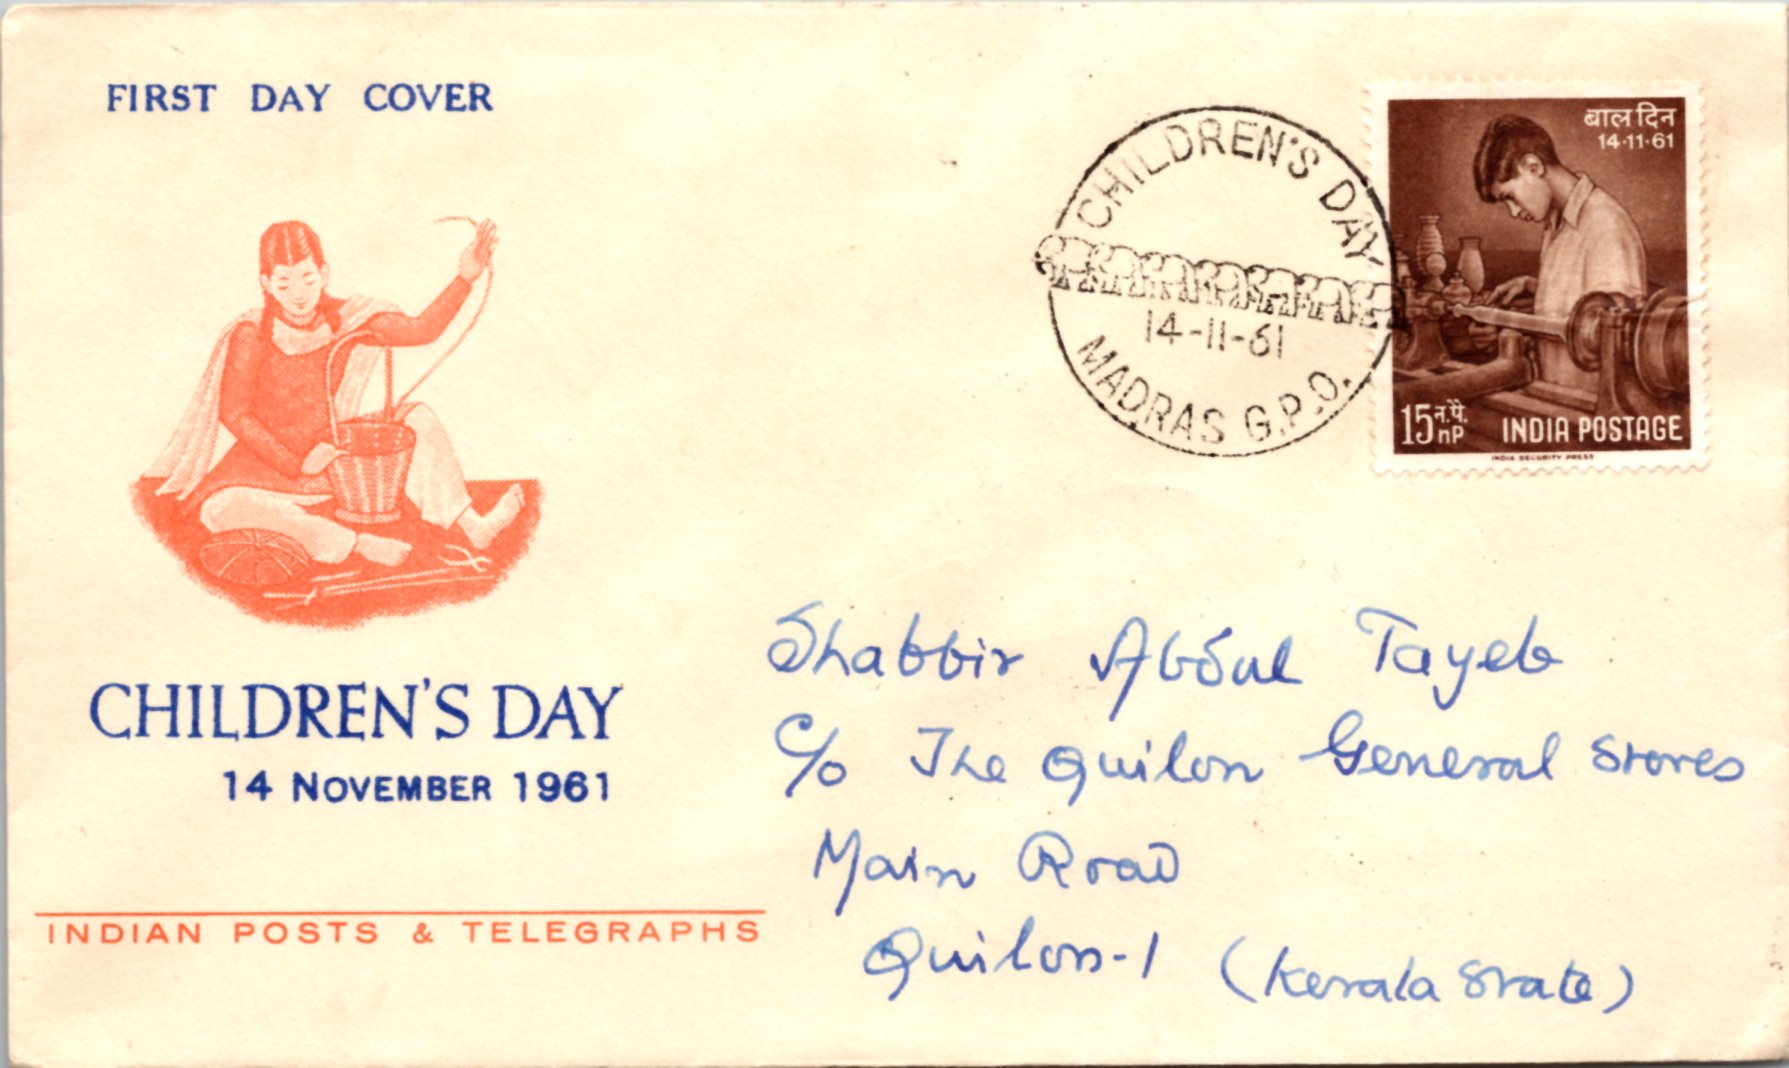 FIRST DAY COVER
CHILDREN'S DAY
14-11-61
MADRAS G.P.O.
बाल दिन
14·11·61
15 न.पै.
nP
INDIA POSTAGE
INDIA SECURITY PRESS
CHILDREN'S DAY
14 NOVEMBER 1961
INDIAN POSTS & TELEGRAPHS
Shabbir Abdul Tayeb
C/o The Quilon General Stores
Main Road
Quilon-1 (Kerala State)